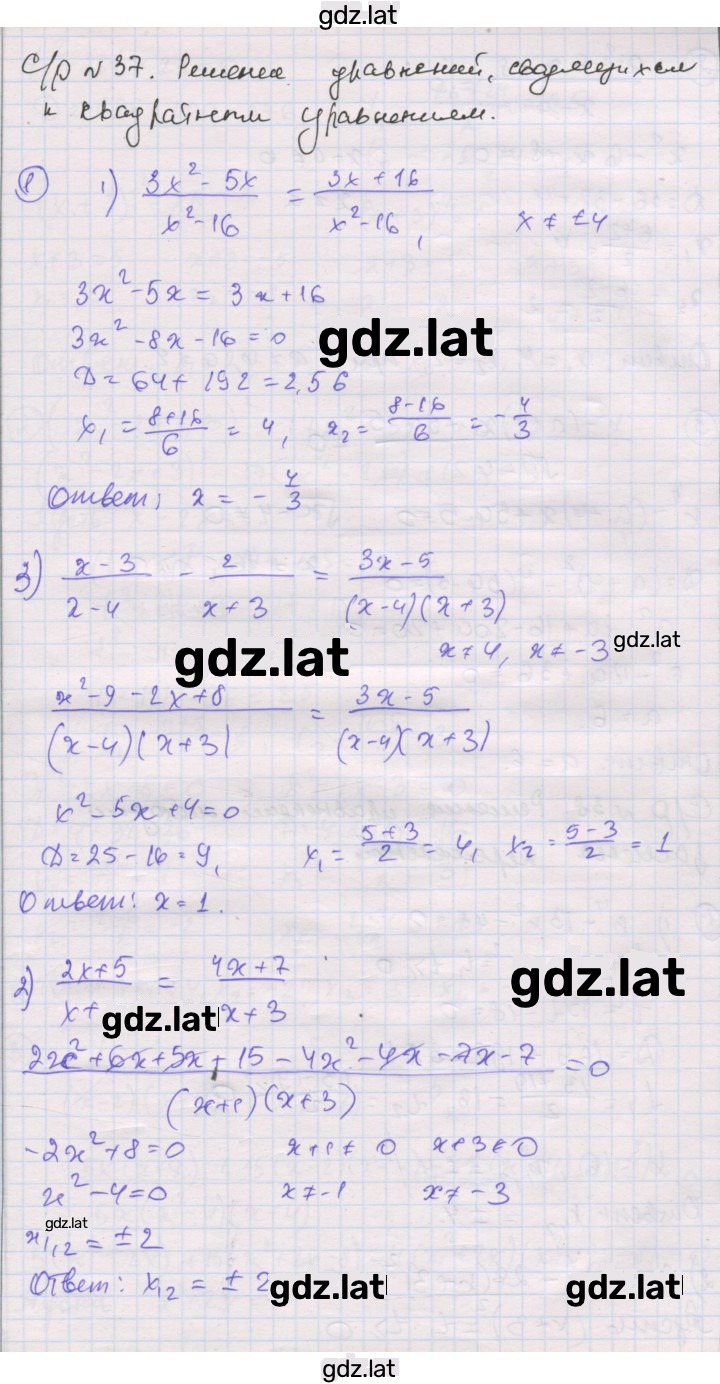 gdz.lat
С/р №37. Решение уравнений, сводящихся
к квадратным уравнениям.
① 1) (3x² - 5x)/(x² - 16) = (3x + 16)/(x² - 16), x ≠ ±4
3x² - 5x = 3x + 16
3x² - 8x - 16 = 0
gdz.lat
D = 64 + 192 = 256
x₁ = (8+16)/6 = 4, x₂ = (8-16)/6 = -4/3
Ответ: x = -4/3
3) (x - 3)/(x - 4) - 2/(x + 3) = (3x - 5)/((x - 4)(x + 3))
gdz.lat
x ≠ 4, x ≠ -3 gdz.lat
(x² - 9 - 2x + 8)/((x - 4)(x + 3)) = (3x - 5)/((x - 4)(x + 3))
x² - 5x + 4 = 0
D = 25 - 16 = 9, x₁ = (5+3)/2 = 4, x₂ = (5-3)/2 = 1
Ответ: x = 1.
2) (2x + 5)/(x + = (4x + 7)/(x + 3)
gdz.lat
gdz.lat
(2x² + 6x + 5x + 15 - 4x² - 4x - 7x - 7)/((x+1)(x+3)) = 0
-2x² + 8 = 0 x + 1 ≠ 0 x + 3 ≠ 0
x² - 4 = 0 x ≠ -1 x ≠ -3
gdz.lat
x₁,₂ = ±2
Ответ: x₁₂ = ± 2
gdz.lat gdz.lat
gdz.lat